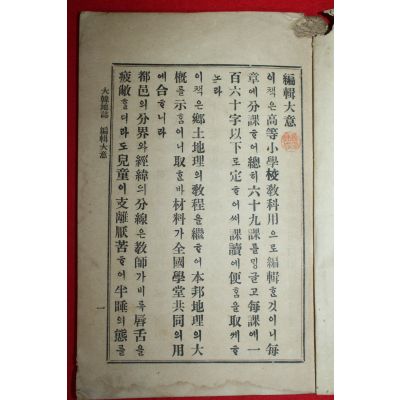 編輯大意
이책은高等小學校敎科用으로編輯ᄒᆞᆫ것이니每
章에分課ᄒᆞ야總히六十九課를밍글고每課에一
百六十字以下로定ᄒᆞ야써課讀에便홈을取케ᄒᆞ
노라
이책은鄕土地理의敎程을繼ᄒᆞ야本邦地理의大
槪를示홈이니取ᄒᆞᆫ바材料가全國學堂共同의用
에合ᄒᆞ니라
都邑의分界와經緯의分線은敎師가비록唇舌을
疲敝ᄒᆞ더라도兒童이支離厭苦ᄒᆞ야半睡의態를
大韓地誌 編輯大意
一